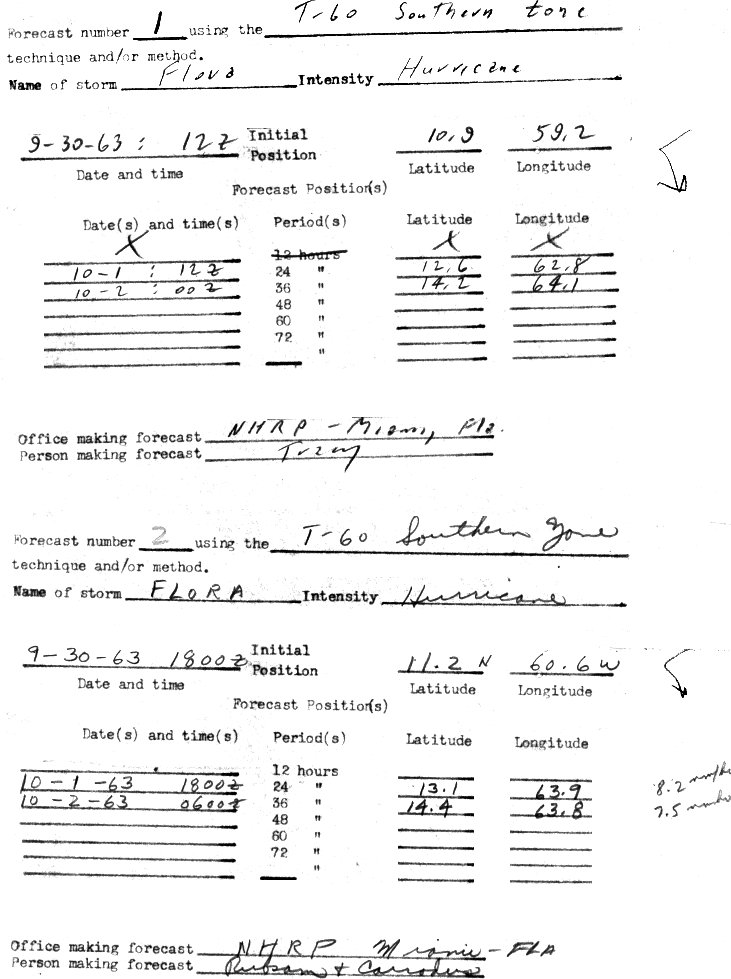 Forecast number 1 using the T-60 Southern Zone
technique and/or method.
Name of storm Flora Intensity Hurricane
9-30-63 : 12Z Initial Position 10.9 59.2
Date and time Latitude Longitude
Forecast Position(s)
Date(s) and time(s) Period(s) Latitude Longitude
X 12 hours X X
10-1 : 12Z 24 " 12.6 62.8
10-2 : 00Z 36 " 14.2 64.1
48 "
60 "
72 "
"
Office making forecast NHRP - Miami, Fla.
Person making forecast Tracy
Forecast number 2 using the T-60 Southern Zone
technique and/or method.
Name of storm FLORA Intensity Hurricane
9-30-63 1800Z Initial Position 11.2 N 60.6 W
Date and time Latitude Longitude
Forecast Position(s)
Date(s) and time(s) Period(s) Latitude Longitude
12 hours
10-1-63 1800Z 24 " 13.1 63.9 8.2
10-2-63 0600Z 36 " 14.4 63.8 7.5
48 "
60 "
72 "
"
Office making forecast NHRP Miami - FLA
Person making forecast &